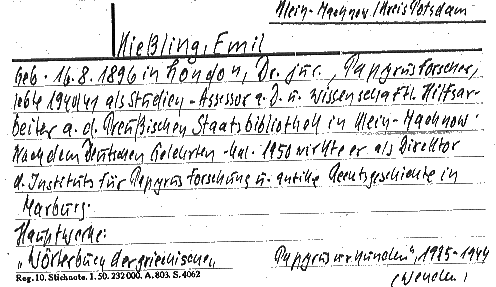 Klein-Machnow/Kreis Potsdam
Kießling, Emil
geb. 16.8.1896 in London, Dr. jur., Papyrusforscher,
lebte 1940/41 als Studien-Assessor a.D. u. wissenschaftl. Hilfsar-
beiter a. d. Preußischen Staatsbibliothek in Klein-Machnow.
Nach dem Deutschen Gelehrten-Kal. 1950 wirkte er als Direktor
d. Instituts für Papyrusforschung u. antike Rechtsgeschichte in
Marburg.
Hauptwerke:
„Wörterbuch der griechischen Papyrusurkunden", 1925-1944
(Wendler)
Reg. 10. Stichnote. 1. 50. 232 000. A. 803. S. 4062